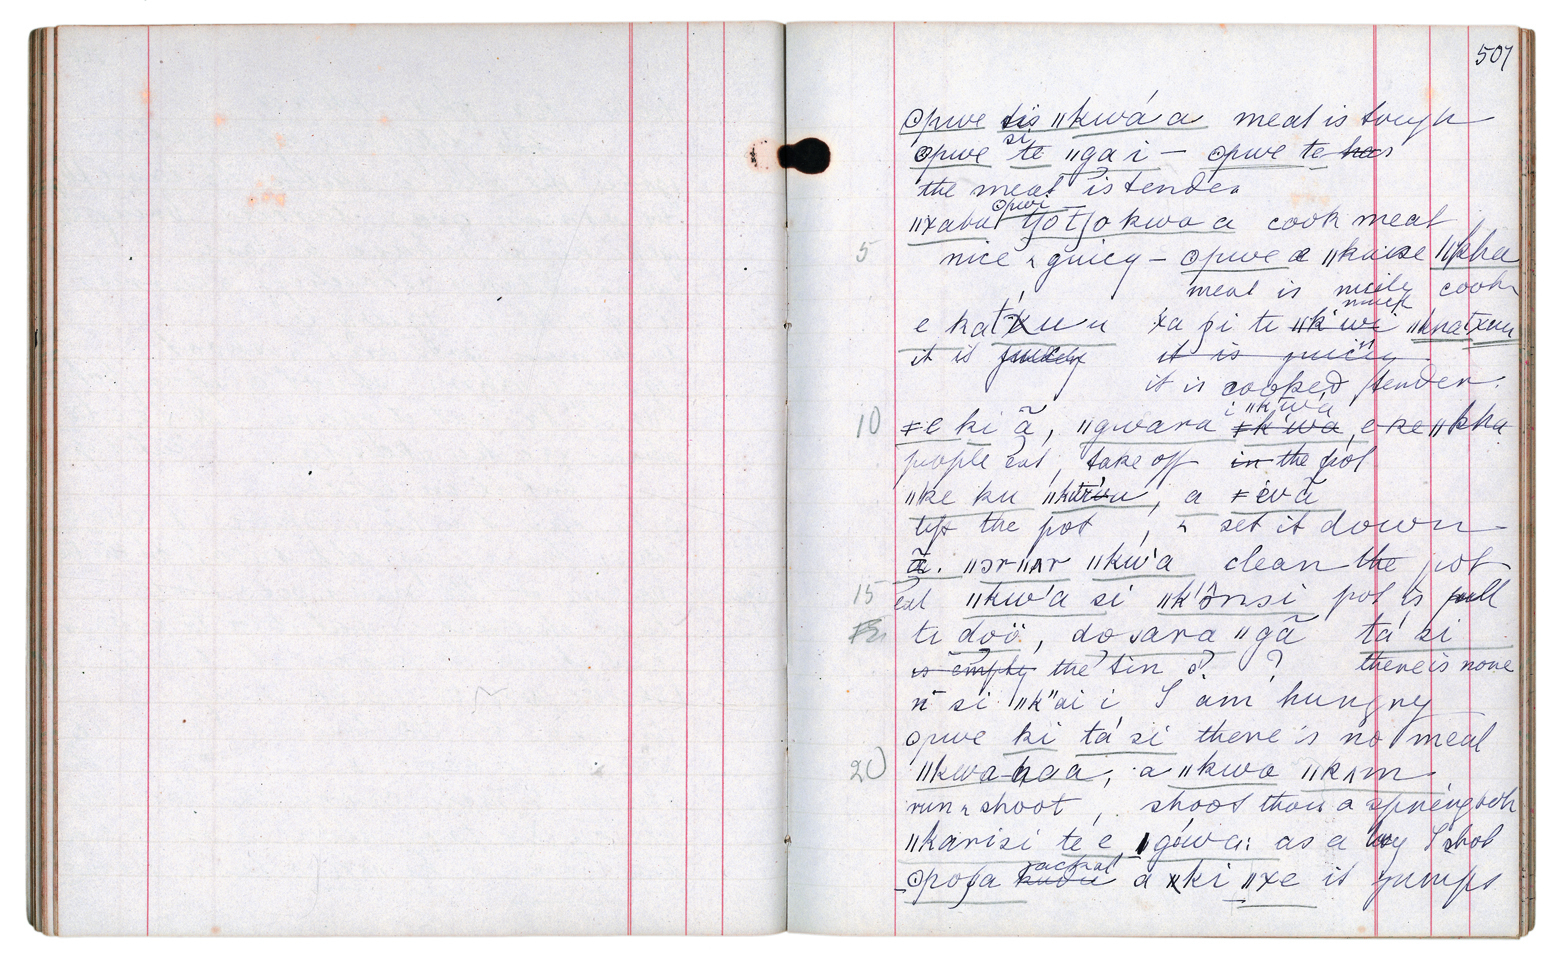 507
ʘpwe tis ǁkwá a meat is tough
ʘpwe si te ǁga i – ʘpwe te has
the meat is tender
ǁxaba ʘpwi kwa a cook meat
5 nice & juicy – ʘpwe a ǁkaise ǁkha
meat is nicely cook
much
e kat'xuu xa pi te ǁk'wi ǁknatxuu
it is juicy it is juicy
it is cooked tender.
i ǁk'wá
10 ǂe ki ã, ǁgwara ǂk'wa, e ke ǁkha
people eat, take off in the pot
ǁke ku, a ǂevã
lift the pot, & set it down
ã. ǁɔrǁʌr ǁkw'a clean the pot
15 eat ǁkw'a si ǁk'ônsi pot is full
te doö, dosara ǁgã tá si
is empty the tin ? ? there is none
n si ǁk"ai i I am hungry
ʘpwe ki tá si there is no meat
20 ǁkwa haa, a ǁkwa ǁkʌm
run & shoot, shoot thou a springbok
ǁkarisi te e ǀgówa: as a boy I shot
ʘpoʃa a xki ǁxe it jumps